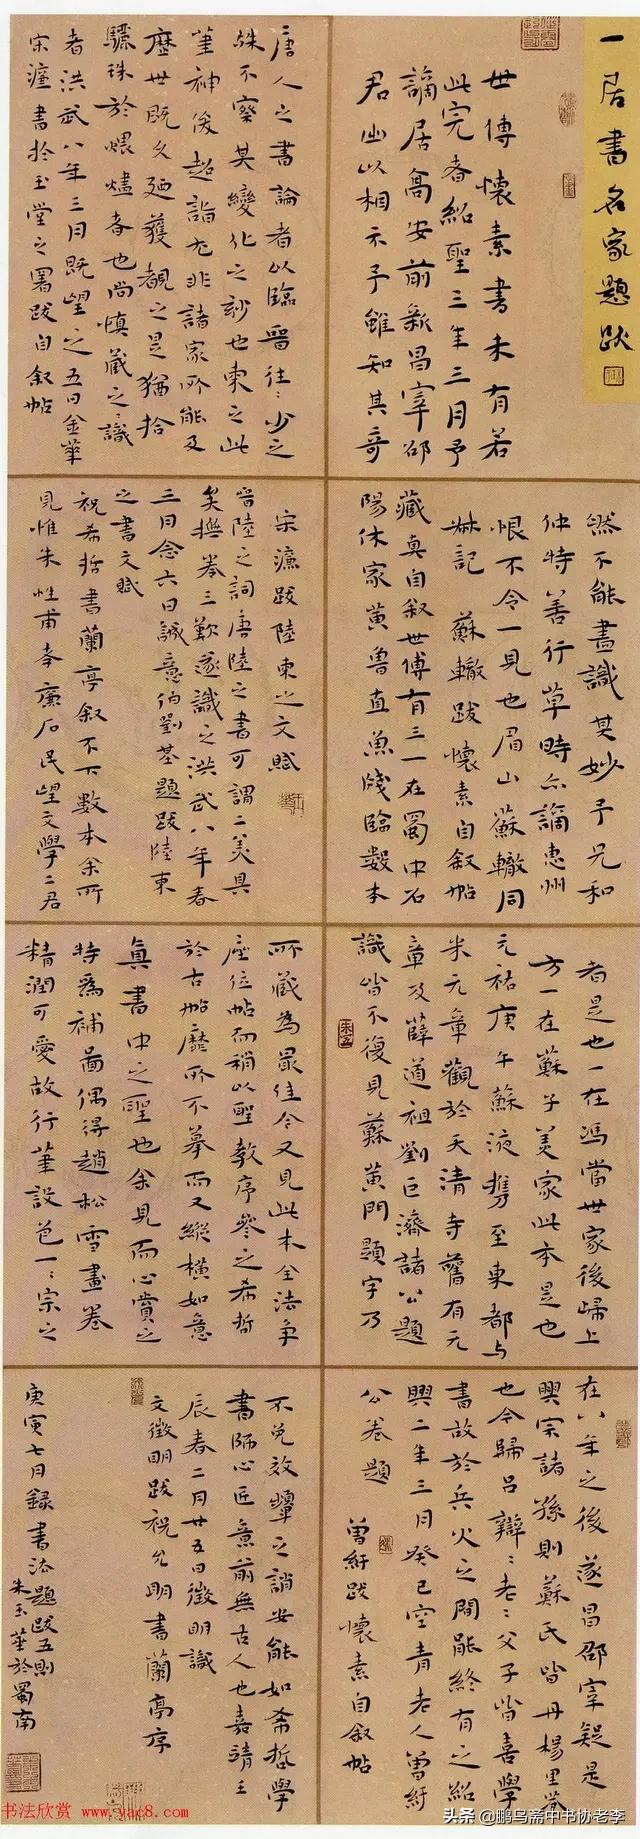 一居書名家題跋
世傳懷素書未有若
此完者紹聖三年三月予
謫居高安前新昌宰邵
君出以相示予雖知其奇
然不能盡識其妙予兄和
仲特善行草時亦謫惠州
恨不令一見也眉山蘇轍同
叔記 蘇轍跋懷素自叙帖
藏真自叙世傳有三一在蜀中石
陽休家黃魯直魚牋臨數本
者是也一在馮當世家後歸上
方一在蘇子美家此本是也
元祐庚午蘇液攜至東都与
米元章觀於天清寺舊有元
章及薛道祖劉巨濟諸公題
識皆不復見蘇黃門題字乃
在八年之後遂昌邵宰疑是
興宗諸孫則蘇氏皆丹楊里巷
也今歸呂辯〻老〻父子皆喜學
書故於兵火之間能終有之紹
興二年三月癸巳空青老人曾紆
公卷題 曾紆跋懷素自叙帖
唐人之書論者以臨晉往〻少之
殊不察其變化之妙也柬之此
筆神俊超詣尤非諸家所能及
歷世既久廼獲覩之是猶拾
驪珠於煨燼者也尚慎藏之〻識
者洪武八年三月既望之五日金華
宋濂書於玉堂之署跋自叙帖
宋濂跋陸柬之文賦
晉陸之詞唐陸之書可謂二美具
矣撫卷三歎遂識之洪武八年春
三月念六日誠意伯劉基題跋陸柬
之書文賦
祝希哲書蘭亭叙不下數本余所
見惟朱性甫孝廉石民望文學二君
所藏為最佳今又見此本全法争
座位帖而稍以聖教序參之希哲
於古帖靡所不摹而又縱橫如意
真書中之聖也余見而心賞之
特為補圖偶得趙松雪畫卷
精潤可愛故行筆設色一〻宗之
不免效顰之誚安能如希哲學
書師心匠意前無古人也嘉靖壬
辰春二月廿五日徵明識
文徵明跋祝允明書蘭亭序
庚寅七月録書法題跋五則
朱玉華於蜀南
书法欣赏 www.yac8.com
头条 @鹏鸟斋中书协老李